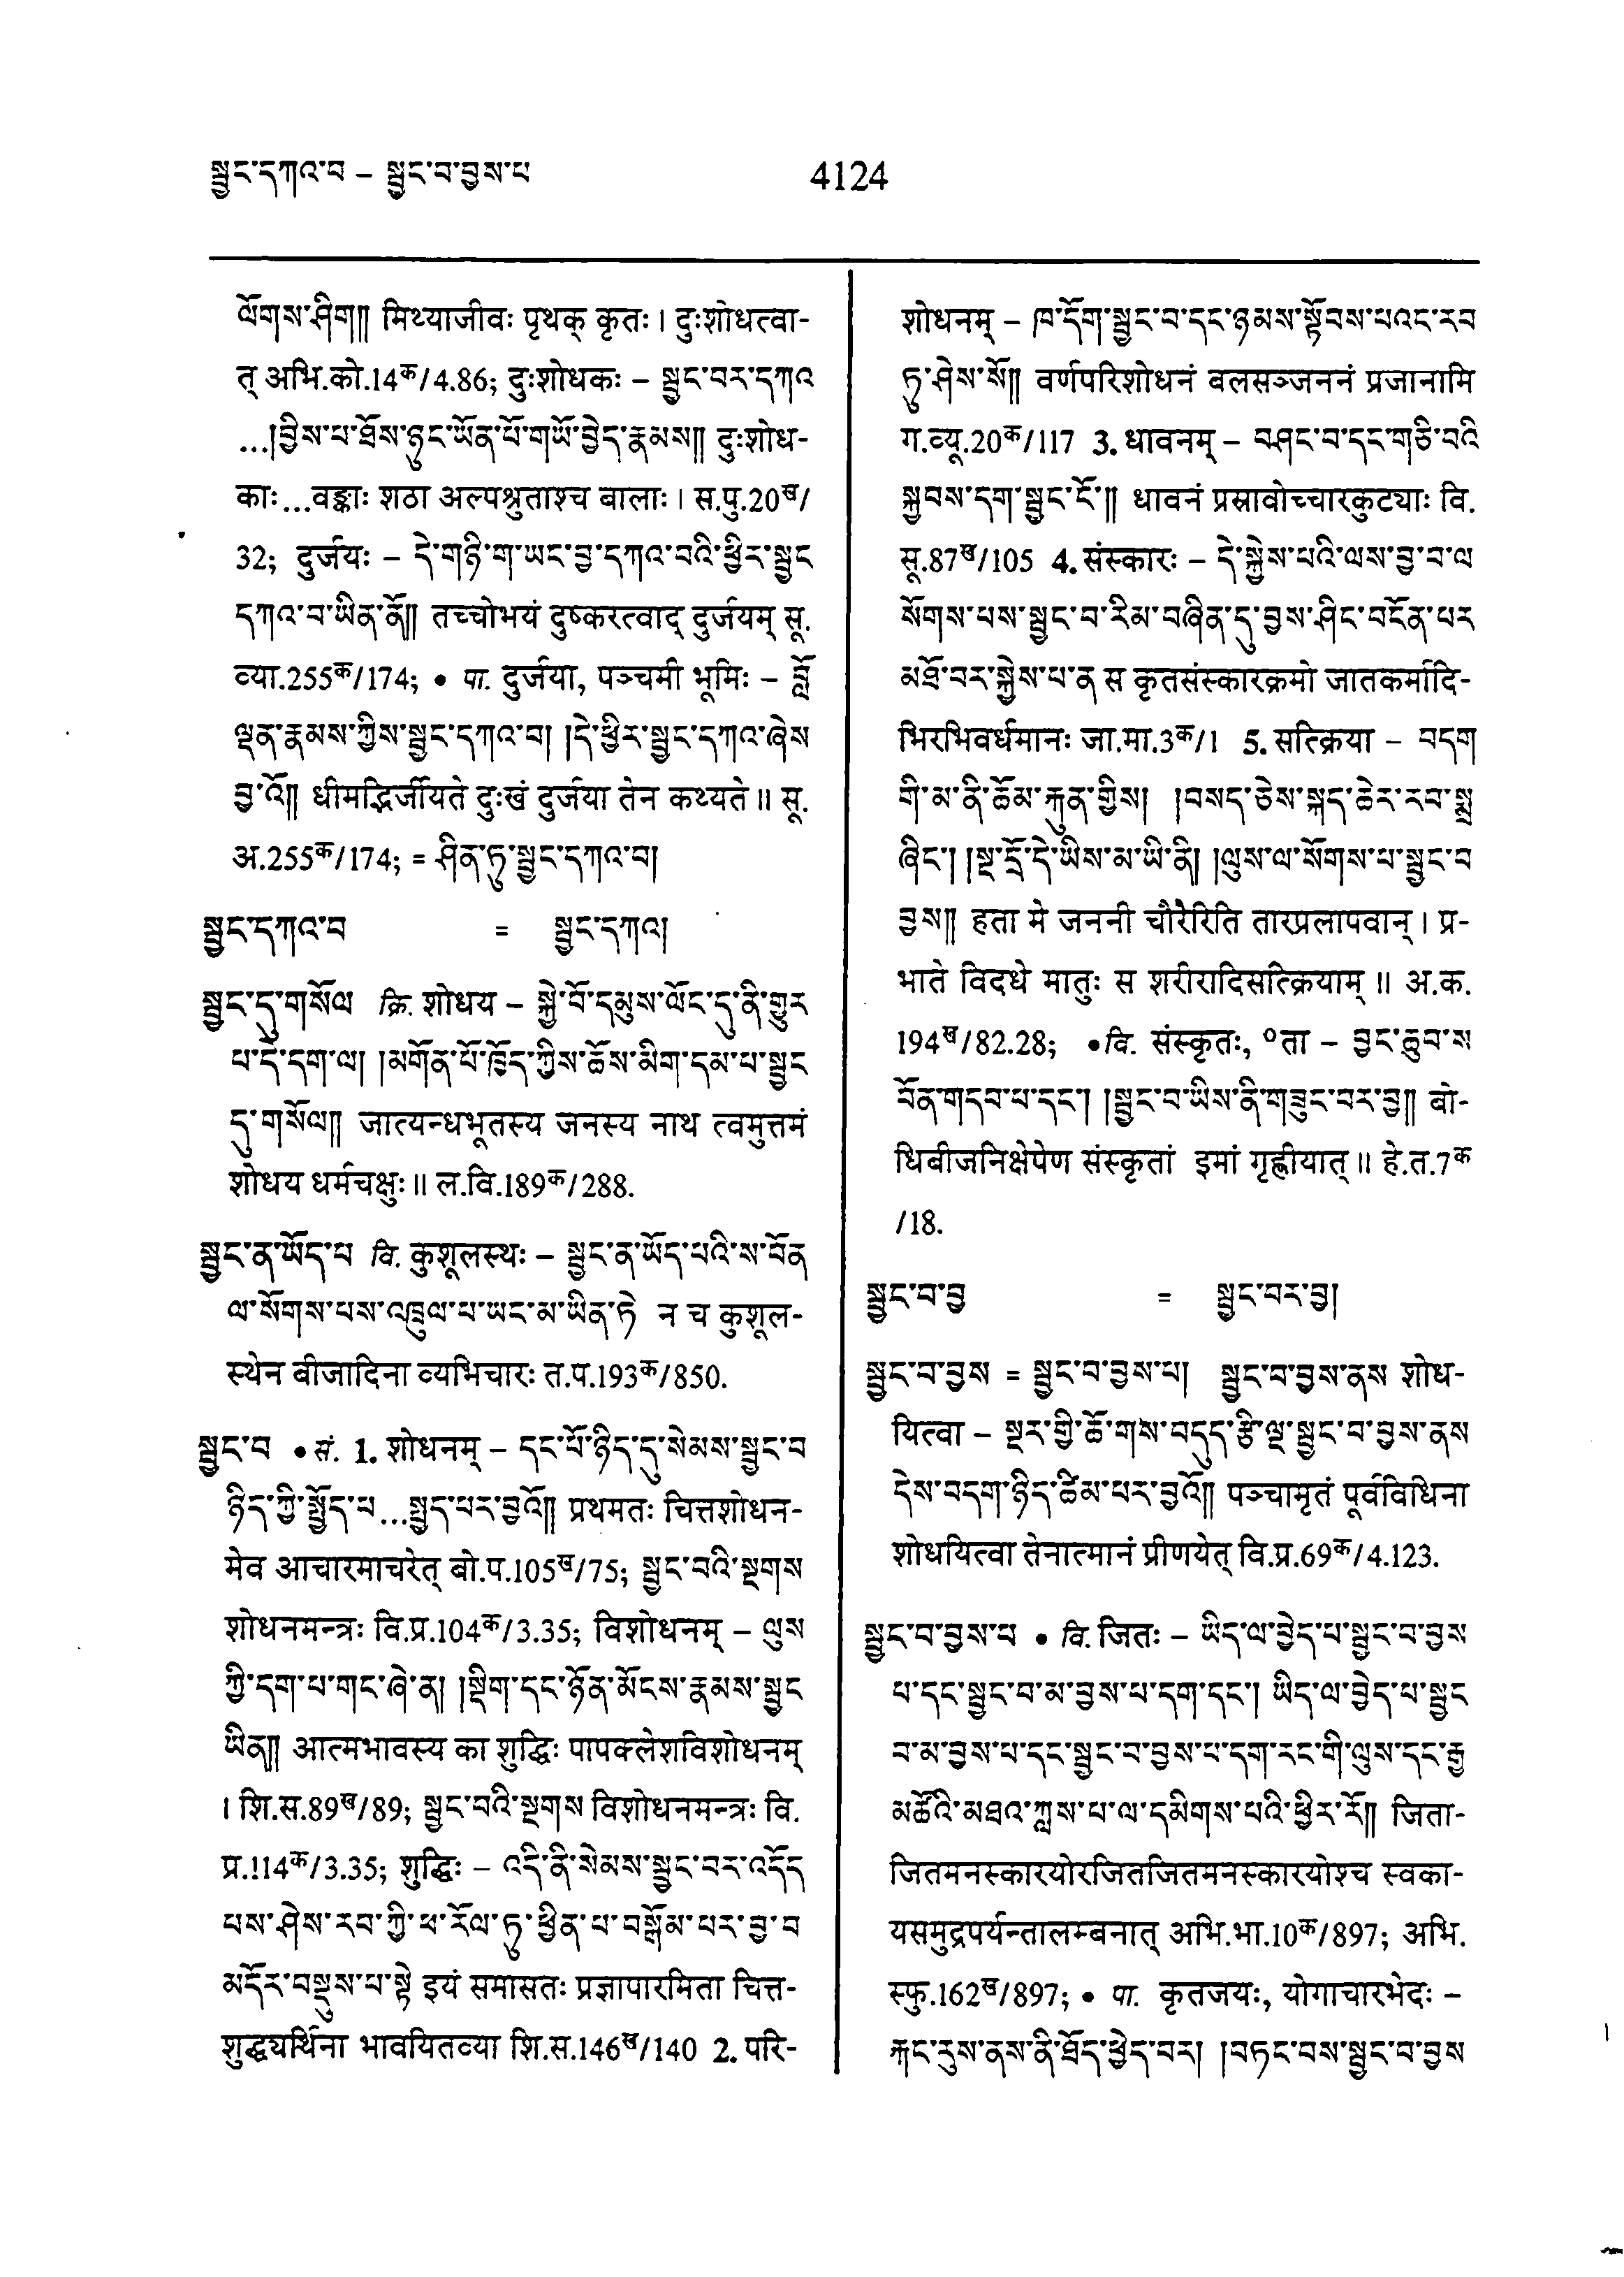 སྦྱང་དཀའ་བ – སྦྱང་བ་བྱས་པ
4124
ལོགས་ཤིག༎ मिथ्याजीवः पृथक् कृतः । दुःशोधत्वा-
त् अभि.को.14क/4.86; दुःशोधकः – སྦྱང་བར་དཀའ
...།བྱིས་པ་ཐོས་ཉུང་ཡོན་པོ་གཡོ་བྱེད་རྣམས༎ दुःशोध-
काः...वङ्काः शठा अल्पश्रुताश्च बालाः । स.पु.20ख/
32; दुर्जयः – དེ་གཉི་ག་ཡང་བྱ་དཀའ་བའི་ཕྱིར་སྦྱང
དཀའ་བ་ཡིན་ནོ༎ तच्चोभयं दुष्करत्वाद् दुर्जयम् सू.
व्या.255क/174; • पा. दुर्जया, पञ्चमी भूमिः – བློ
ལྡན་རྣམས་ཀྱིས་སྦྱང་དཀའ་བ། །དེ་ཕྱིར་སྦྱང་དཀའ་ཞེས
བྱ་འོ༎ धीमद्भिर्जीयते दुःखं दुर्जया तेन कथ्यते ॥ सू.
अ.255क/174; = ཤིན་ཏུ་སྦྱང་དཀའ་བ།
སྦྱང་དཀའ་བ = སྦྱང་དཀའ།
སྦྱང་དུ་གསོལ क्रि. शोधय – སྐྱེ་བོ་དམུས་ལོང་དུ་ནི་གྱུར
པ་དེ་དག་ལ། །མགོན་པོ་ཁྱོད་ཀྱིས་ཆོས་མིག་དམ་པ་སྦྱང
དུ་གསོལ༎ जात्यन्धभूतस्य जनस्य नाथ त्वमुत्तमं
शोधय धर्मचक्षुः ॥ ल.वि.189क/288.
སྦྱང་ན་ཡོད་པ वि. कुशूलस्थः – སྦྱང་ན་ཡོད་པའི་ས་བོན
ལ་སོགས་པས་འཁྲུལ་པ་ཡང་མ་ཡིན་ཏེ न च कुशूल-
स्थेन बीजादिना व्यभिचारः त.प.193क/850.
སྦྱང་བ • सं. 1. शोधनम् – དང་པོ་ཉིད་དུ་སེམས་སྦྱང་བ
ཉིད་ཀྱི་སྤྱོད་པ...སྤྱད་པར་བྱའོ༎ प्रथमतः चित्तशोधन-
मेव आचारमाचरेत् बो.प.105ख/75; སྦྱང་བའི་སྔགས
शोधनमन्त्रः वि.प्र.104क/3.35; विशोधनम् – ལུས
ཀྱི་དག་པ་གང་ཞེ་ན། །སྡིག་དང་ཉོན་མོངས་རྣམས་སྦྱང
ཡིན༎ आत्मभावस्य का शुद्धिः पापक्लेशविशोधनम्
। शि.स.89ख/89; སྦྱང་བའི་སྔགས विशोधनमन्त्रः वि.
प्र.114क/3.35; शुद्धिः – འདི་ནི་སེམས་སྦྱང་བར་འདོད
པས་ཤེས་རབ་ཀྱི་ཕ་རོལ་ཏུ་ཕྱིན་པ་བསྒོམ་པར་བྱ་བ
མདོར་བསྡུས་པ་སྟེ इयं समासतः प्रज्ञापारमिता चित्त-
शुद्ध्यर्थिना भावयितव्या शि.स.146ख/140 2. परि-
शोधनम् – ཁ་དོག་སྦྱང་བ་དང་ཉམས་སྟོབས་པའང་རབ
ཏུ་ཤེས་སོ༎ वर्णपरिशोधनं बलसञ्जननं प्रजानामि
ग.व्यू.20क/117 3. धावनम् – བཤང་བ་དང་གཅི་བའི
སྐྱབས་དག་སྦྱང་ངོ་༎ धावनं प्रस्रावोच्चारकुट्याः वि.
सू.87ख/105 4. संस्कारः – དེ་སྐྱེས་པའི་ལས་བྱ་བ་ལ
སོགས་པས་སྦྱང་བ་རིམ་བཞིན་དུ་བྱས་ཤིང་བངོན་པར
མཐོ་བར་སྐྱེས་པ་ན स कृतसंस्कारक्रमो जातकर्मादि-
भिरभिवर्धमानः जा.मा.3क/1 5. सत्क्रिया – བདག
གི་མ་ནི་ཆོམ་རྐུན་གྱིས། །བསད་ཅེས་སྐད་ཆེར་རབ་སྨྲ
ཞིང་། །སྔ་དྲོ་དེ་ཡིས་མ་ཡི་ནི། །ལུས་ལ་སོགས་པ་སྦྱང་བ
བྱས༎ हता मे जननी चौरैरिति तारप्रलापवान् । प्र-
भाते विदधे मातुः स शरीरादिसत्क्रियाम् ॥ अ.क.
194ख/82.28; •वि. संस्कृतः, ०ता – བྱང་ཆུབ་ས
བོན་གདབ་པ་དང་། །སྦྱང་བ་ཡིས་ནི་གཟུང་བར་བྱ༎ बो-
धिबीजनिक्षेपेण संस्कृतां इमां गृह्णीयात् ॥ हे.त.7क
/18.
སྦྱང་བ་བྱ = སྦྱང་བར་བྱ།
སྦྱང་བ་བྱས = སྦྱང་བ་བྱས་པ། སྦྱང་བ་བྱས་ནས शोध-
यित्वा – སྔར་གྱི་ཆོ་གས་བདུད་རྩི་ལྔ་སྦྱང་བ་བྱས་ནས
དེས་བདག་ཉིད་ཚིམ་པར་བྱའོ༎ पञ्चामृतं पूर्वविधिना
शोधयित्वा तेनात्मानं प्रीणयेत् वि.प्र.69क/4.123.
སྦྱང་བ་བྱས་པ • वि. जितः – ཡིད་ལ་བྱེད་པ་སྦྱང་བ་བྱས
པ་དང་སྦྱང་བ་མ་བྱས་པ་དག་དང་། ཡིད་ལ་བྱེད་པ་སྦྱང
བ་མ་བྱས་པ་དང་སྦྱང་བ་བྱས་པ་དག་རང་གི་ལུས་དང་རྒྱ
མཚོའི་མཐའ་ཀླས་པ་ལ་དམིགས་པའི་ཕྱིར་རོ༎ जिता-
जितमनस्कारयोरजितजितमनस्कारयोश्च स्वका-
यसमुद्रपर्यन्तालम्बनात् अभि.भा.10क/897; अभि.
स्फु.162ख/897; • पा. कृतजयः, योगाचारभेदः –
རྐང་རུས་ནས་ནི་ཐོད་ཕྱེད་བར། །བཏང་བས་སྦྱང་བ་བྱས